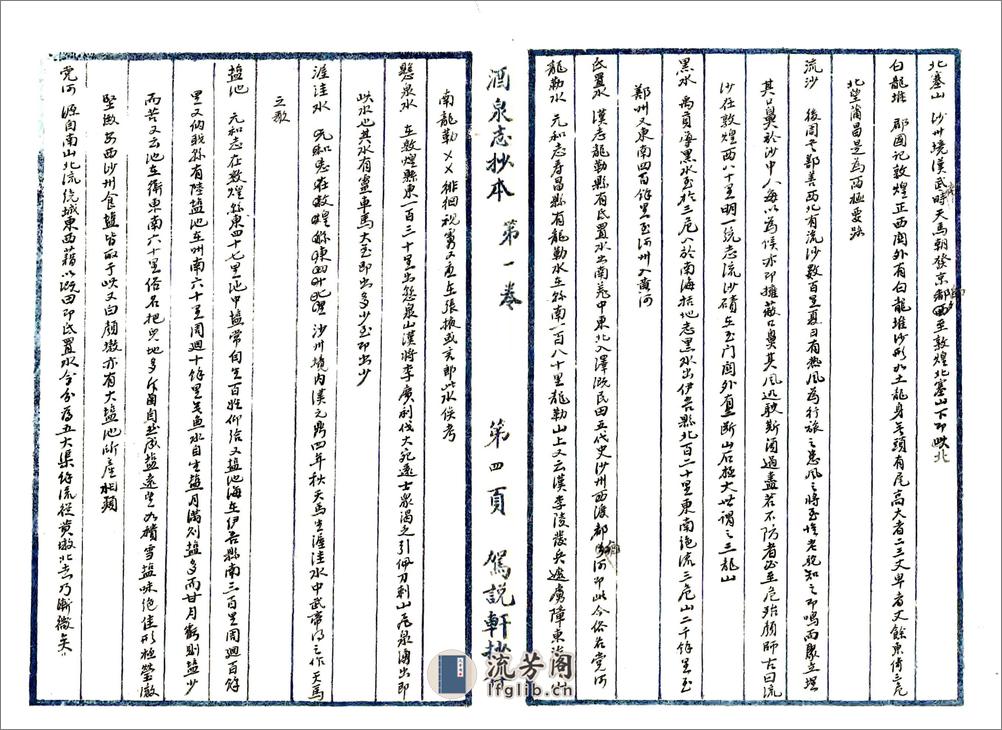 北塞山 沙州境漢武時天馬朝發京都西至敦煌北塞山下即此北
白龍堆 郡國記敦煌正西關外有白龍堆沙形如土龍身無頭有尾高大者二三丈卑者丈餘東倚三危
北望蒲昌是為西極要路
流沙 後周書鄯善西北有流沙數百里夏日有熱風為行旅之患風之將至惟老駝知之即鳴而聚立埋
其口鼻於沙中人每以為候亦即擁蔽口鼻其風迅駛斯須過盡若不防者必至危殆顏師古曰流
沙在敦煌西八十里明一統志流沙磧在玉門關外有三斷山石極大世謂之三龍山
黑水 禹貢導黑水至於三危入於南海括地志黑水出伊吾縣北百二十里東南絕流三危山二千餘里至
鄯州又東南四百餘里至河州入黃河
氐置水 漢志龍勒縣有氐置水出南羌中東北入澤溉民田五代史沙州西渡都鄉河即此今俗名党河
龍勒水 元和志壽昌縣有龍勒水在縣南一百八十里龍勒山上又云漢李陵發兵遮虜障東浚
酒泉志抄本 第一卷 第四頁 駕説軒抄
南龍勒××徘徊視虜又應在張掖或云即此水俟考
懸泉水 在敦煌縣東一百三十里出懸泉山漢將李廣利伐大宛還士眾渴乏引佩刀刺山飛泉湧出即
此水也其水有靈車馬大至即出多少至即出少
渥洼水 沙州境内漢元鼎四年秋天馬生渥洼水中武帝得之作天馬
之歌
鹽池 元和志在敦煌縣東四十七里池中鹽常自生百姓仰給又鹽池海在伊吾縣南三百里周迴百餘
里又納職縣有陸鹽池在州南六十里周迴十餘里無魚水自生鹽月滿則鹽多而甘月虧則鹽少
而苦又云池在衛東南六十里俗名把 地多斥鹵自然成鹽遠望如積雪鹽味絕佳形極瑩澈
堅潔安西沙州食鹽皆取于此又白顏墩亦有大鹽池所產此類
党河 源自南山北流繞城東西藉以溉田即氐置水今分為五大渠餘流從黃墩北去乃漸微矣
流芳阁
lfglib.cn